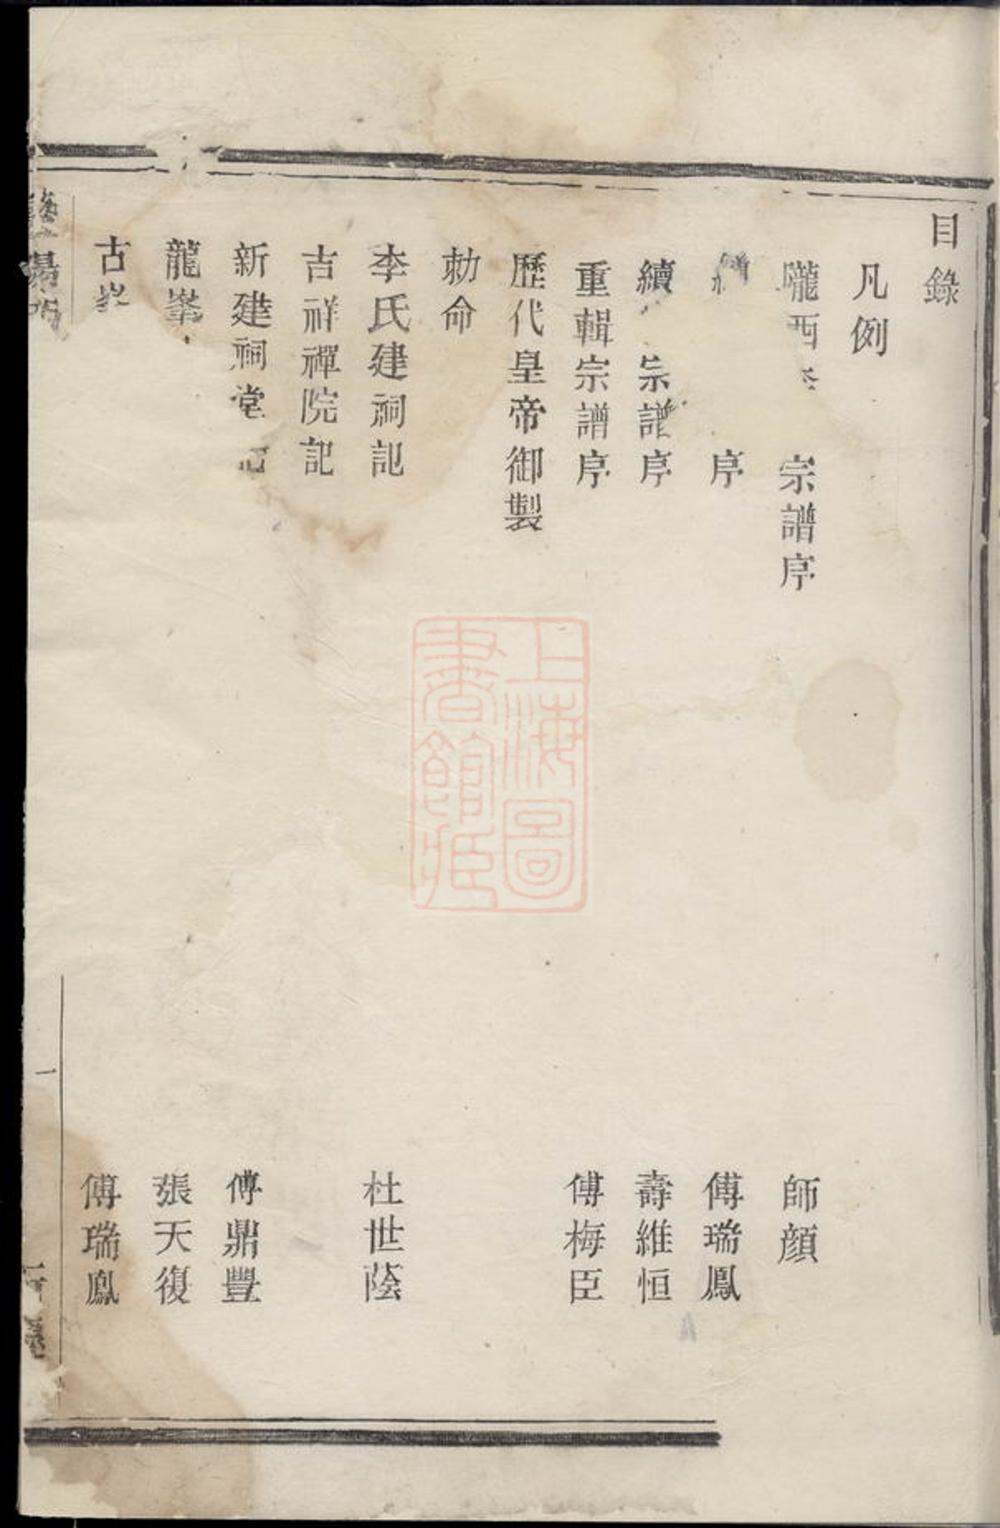 目錄
凡例
隴西 宗譜序 師顏
序 傅瑞鳳
續 宗譜序 壽維恒
重輯宗譜序 傅梅臣
歷代皇帝御製
勅命
李氏建祠記 杜世蔭
吉祥禪院記
新建祠堂記 傅鼎豐
龍峯 張天復
古 傅瑞鳳
一
上海圖書館藏